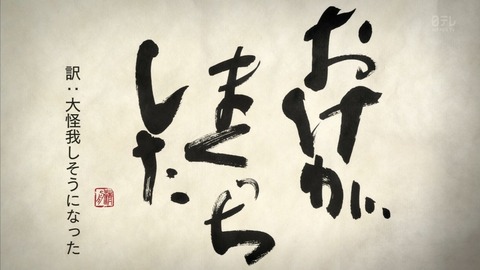 おけが
まくぢ
した
訳：大怪我しそうになった
日テレ